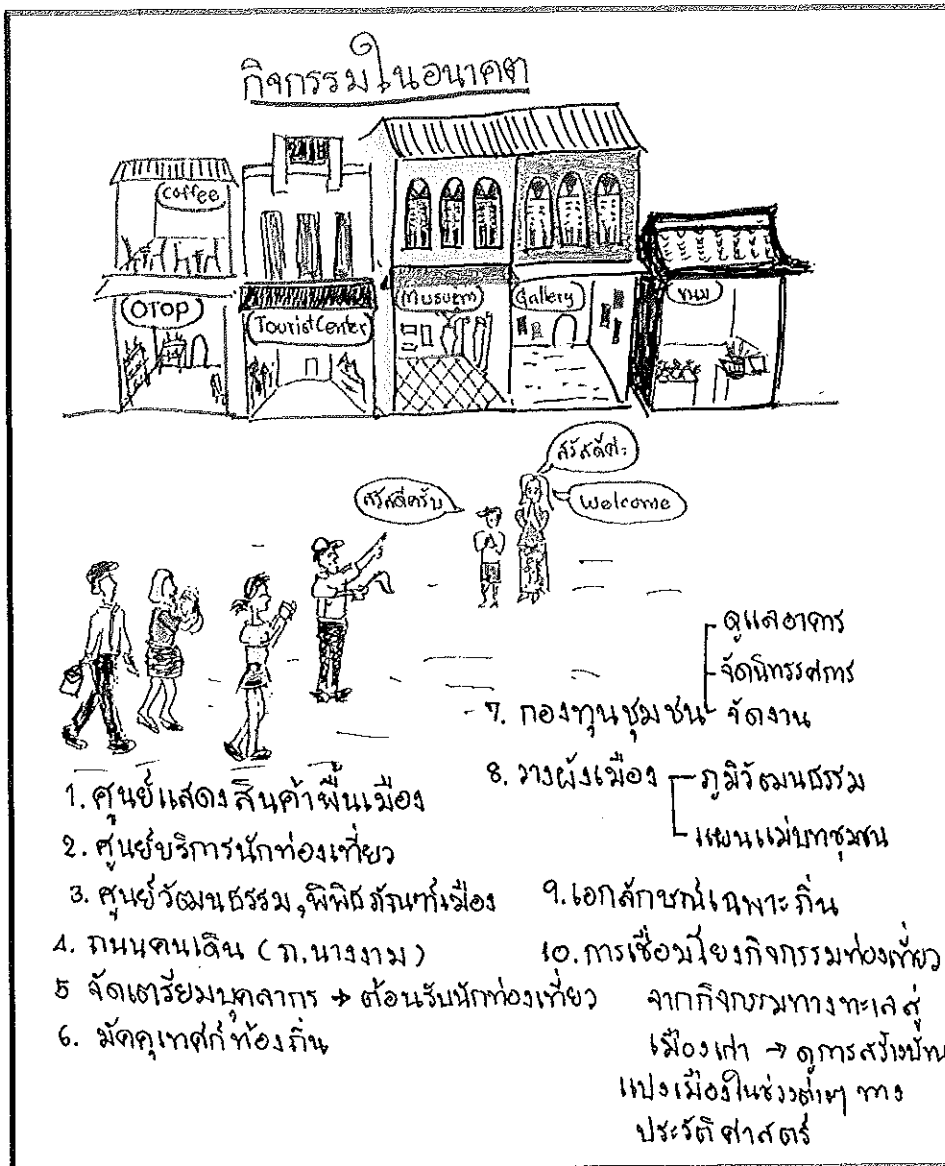 กิจกรรมในอนาคต
2478
Coffee
OTOP
Tourist Center
Musuem
Gallery
ขนม
สวัสดีค่ะ
สวัสดีครับ
Welcome
1. ศูนย์แสดงสินค้าพื้นเมือง
2. ศูนย์บริการนักท่องเที่ยว
3. ศูนย์วัฒนธรรม, พิพิธภัณฑ์เมือง
4. ถนนคนเดิน (ถ.นางงาม)
5 จัดเตรียมบุคลากร → ต้อนรับนักท่องเที่ยว
6. มัคคุเทศก์ท้องถิ่น
7. กองทุนชุมชน
ดูแลอาคาร
จัดนิทรรศการ
จัดงาน
8. วางผังเมือง
ภูมิวัฒนธรรม
แผนแม่บทชุมชน
9. เอกลักษณ์เฉพาะถิ่น
10. การเชื่อมโยงกิจกรรมท่องเที่ยว
จากกิจกรรมทางทะเลสู่
เมืองเก่า → ดูการสร้างบ้าน
แปงเมืองในช่วงต่างๆ ทาง
ประวัติศาสตร์